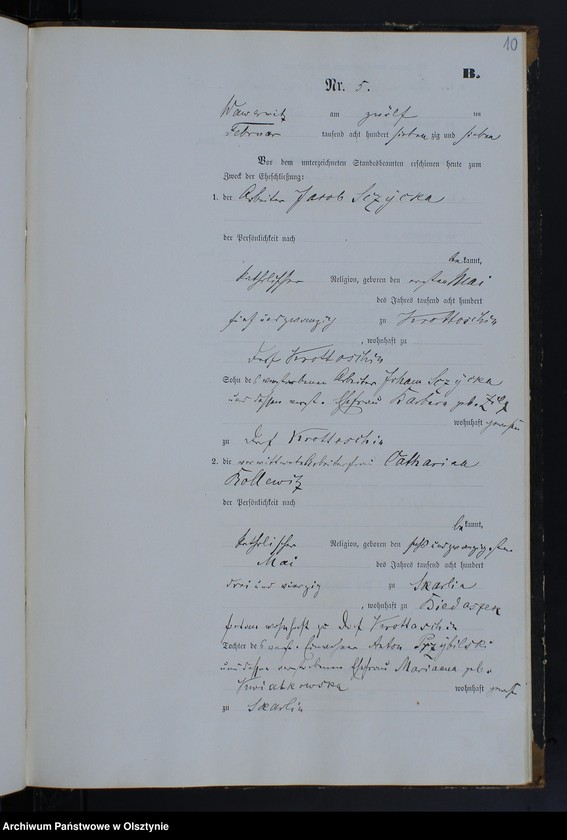 10
B.
Nr. 5.
Wawerwitz am zwölf ten
Februar tausend acht hundert sieben zig und sieben
Vor dem unterzeichneten Standesbeamten erschienen heute zum
Zweck der Eheschließung:
1. der Arbeiter Jacob Sczycka
der Persönlichkeit nach
bekannt,
katholischer Religion, geboren den ersten Mai
des Jahres tausend acht hundert
fünf und zwanzig zu Krottoschin
, wohnhaft zu
Dorf Krottoschin
Sohn des verstorbenen Arbeiter Johann Sczycka
und dessen verst. Ehefrau Barbara geb.
wohnhaft gewesen
zu Dorf Krottoschin
2. die verwittwete Arbeiterfrau Catharina
Kollewitz
der Persönlichkeit nach
bekannt,
katholischer Religion, geboren den sechs und zwanzigsten
Mai des Jahres tausend acht hundert
drei und vierzig zu Skarlin
, wohnhaft zu
wohnhaft zu Dorf Krottoschin
Tochter des verst. Einwohner Anton Przybilski
und dessen verstorbenen Ehefrau Marianna geb.
Kwiatkowska wohnhaft gewesen
zu Skarlin
Archiwum Państwowe w Olsztynie